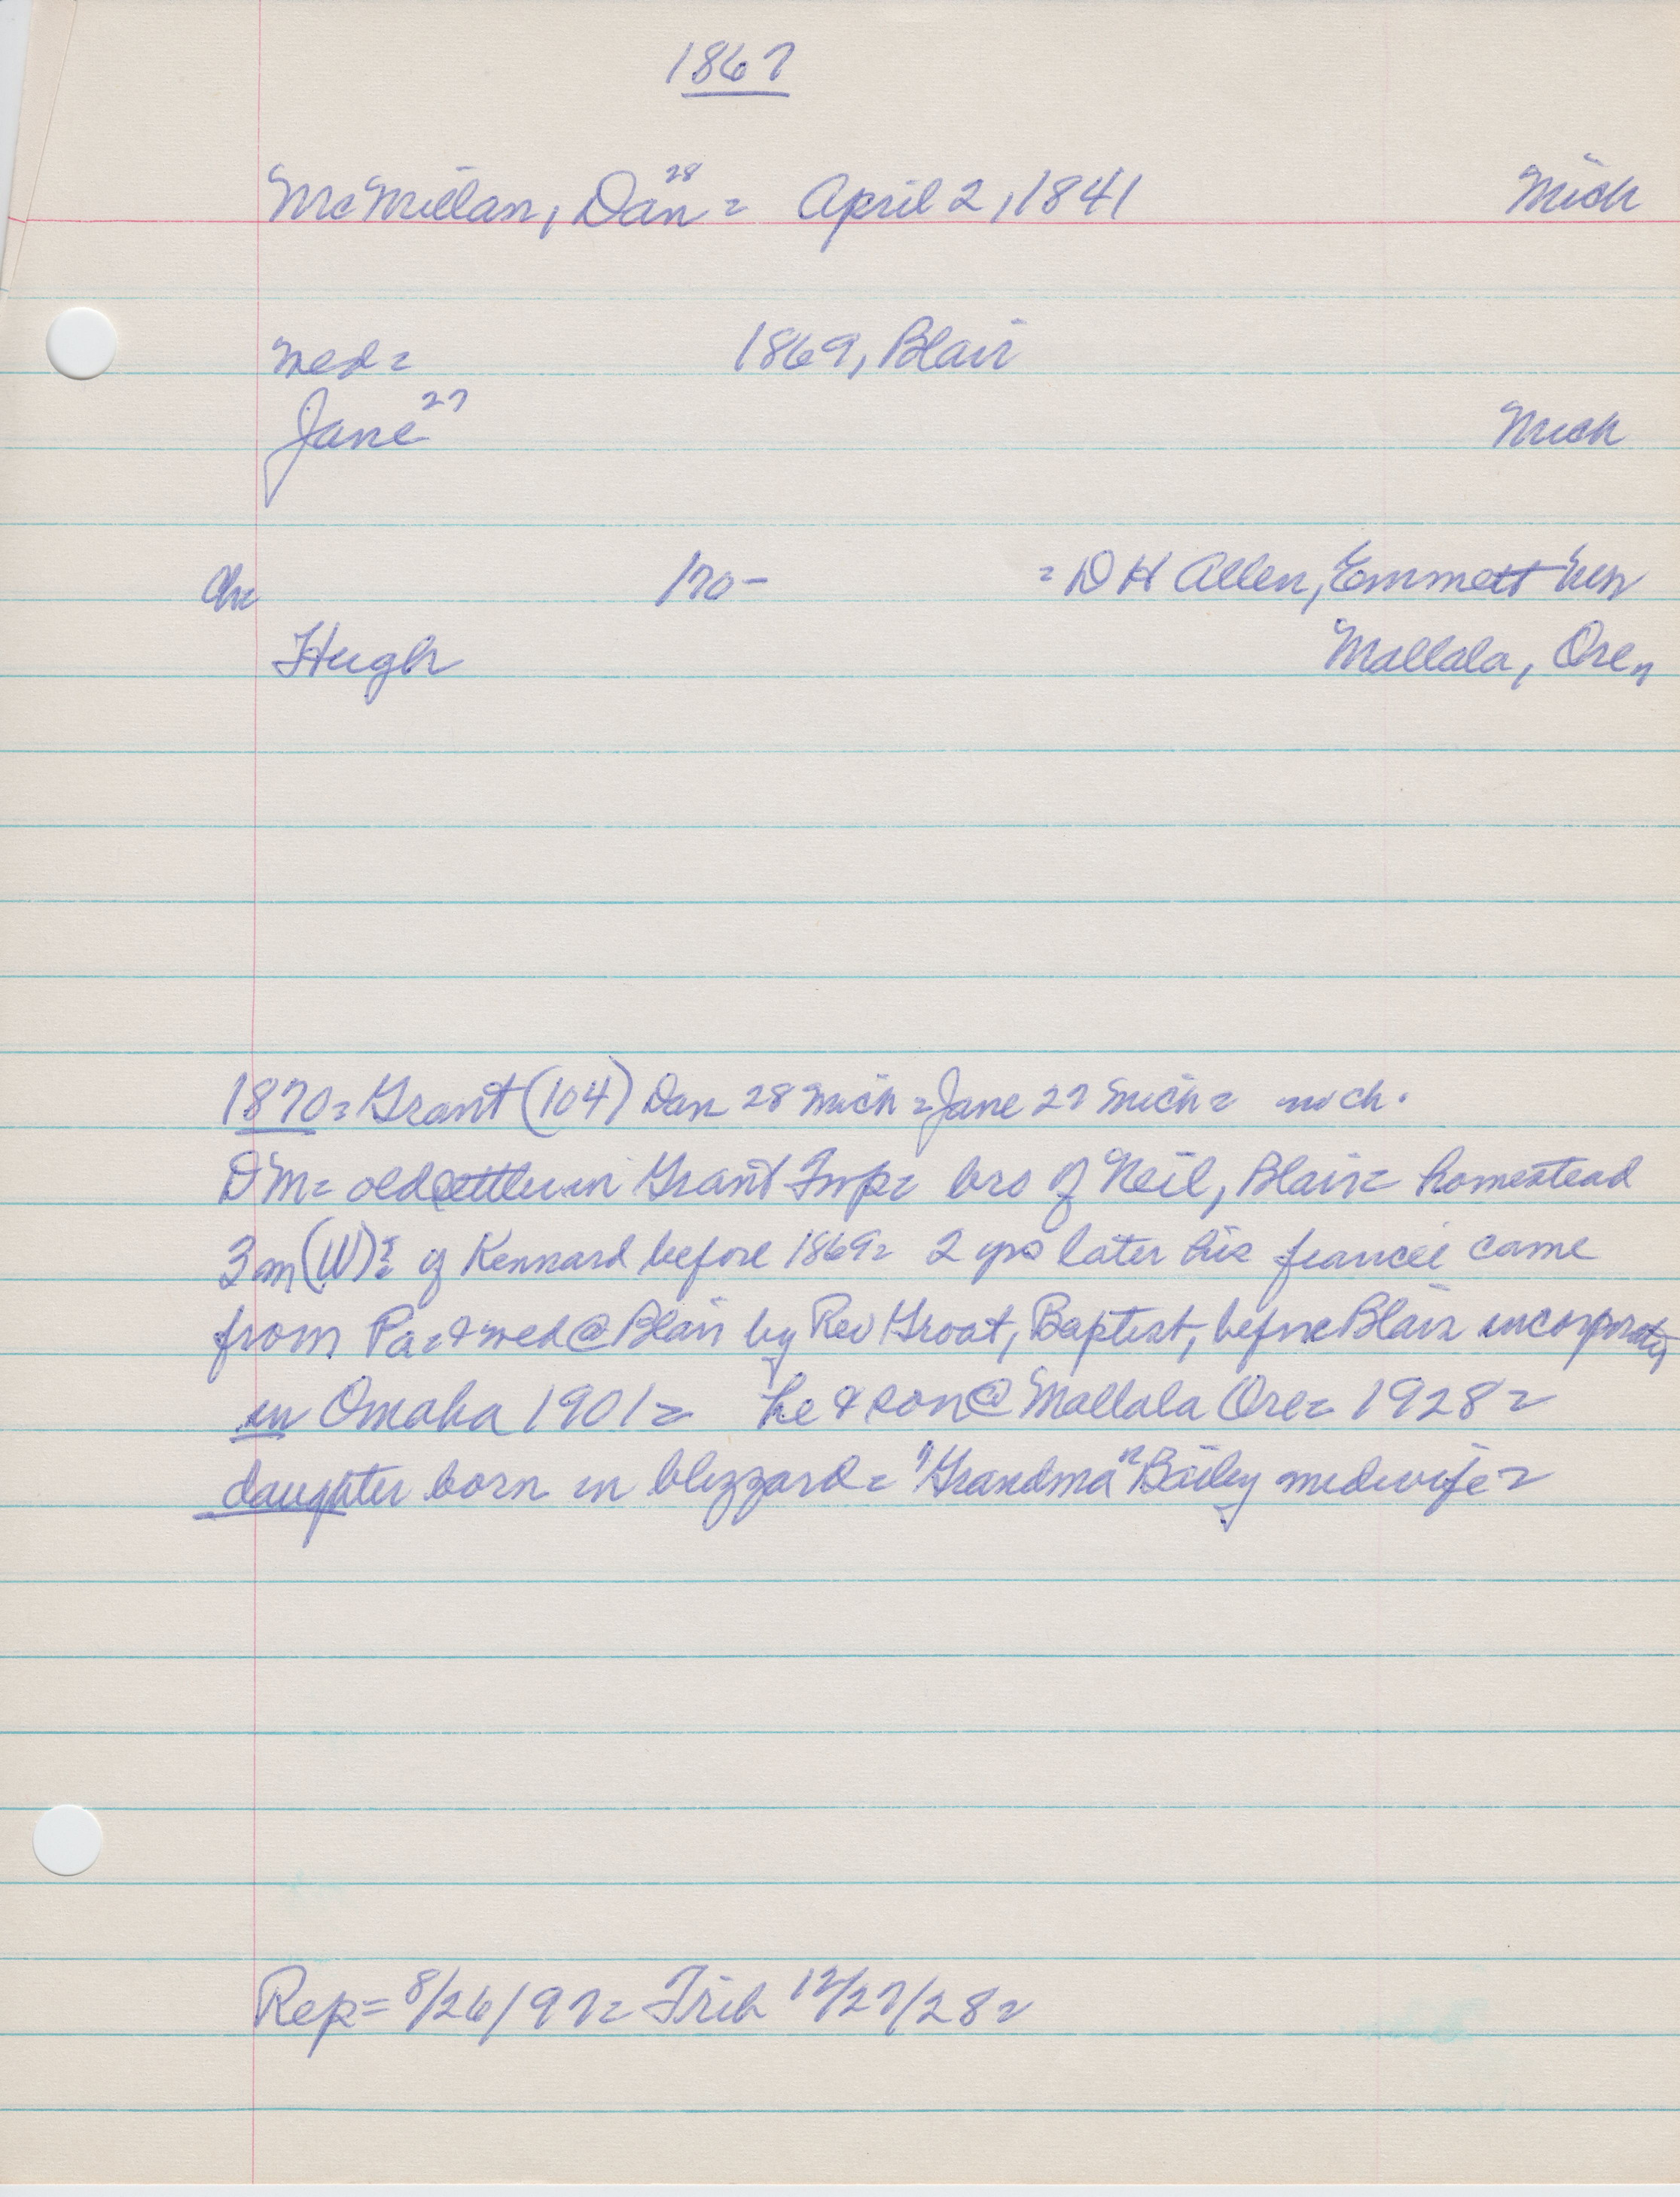 1867
McMillan, Dan 28 = April 2, 1841 Mich
med = 1869, Blair
Jane 27 Mich
Ch = '70 - = D H Allen, Emmett
Hugh Mallala, Ore,
1870 = Grant (104) Dan 28 Mich = Jane 27 Mich = no ch.
D M = old settler in Grant Twp = bro of Neil, Blair = homestead
3 m (W) = of Kennard before 1869 = 2 yrs later his fiancee came
from Pa = & med @ Blair by Rev Groat, Baptist, before Blair
in Omaha 1901 = he & son @ Mallala Ore = 1928 =
daughter born in blizzard = "Grandma" Bailey midwife =
Rep = 8/26/97 = Trib 12/27/28 =